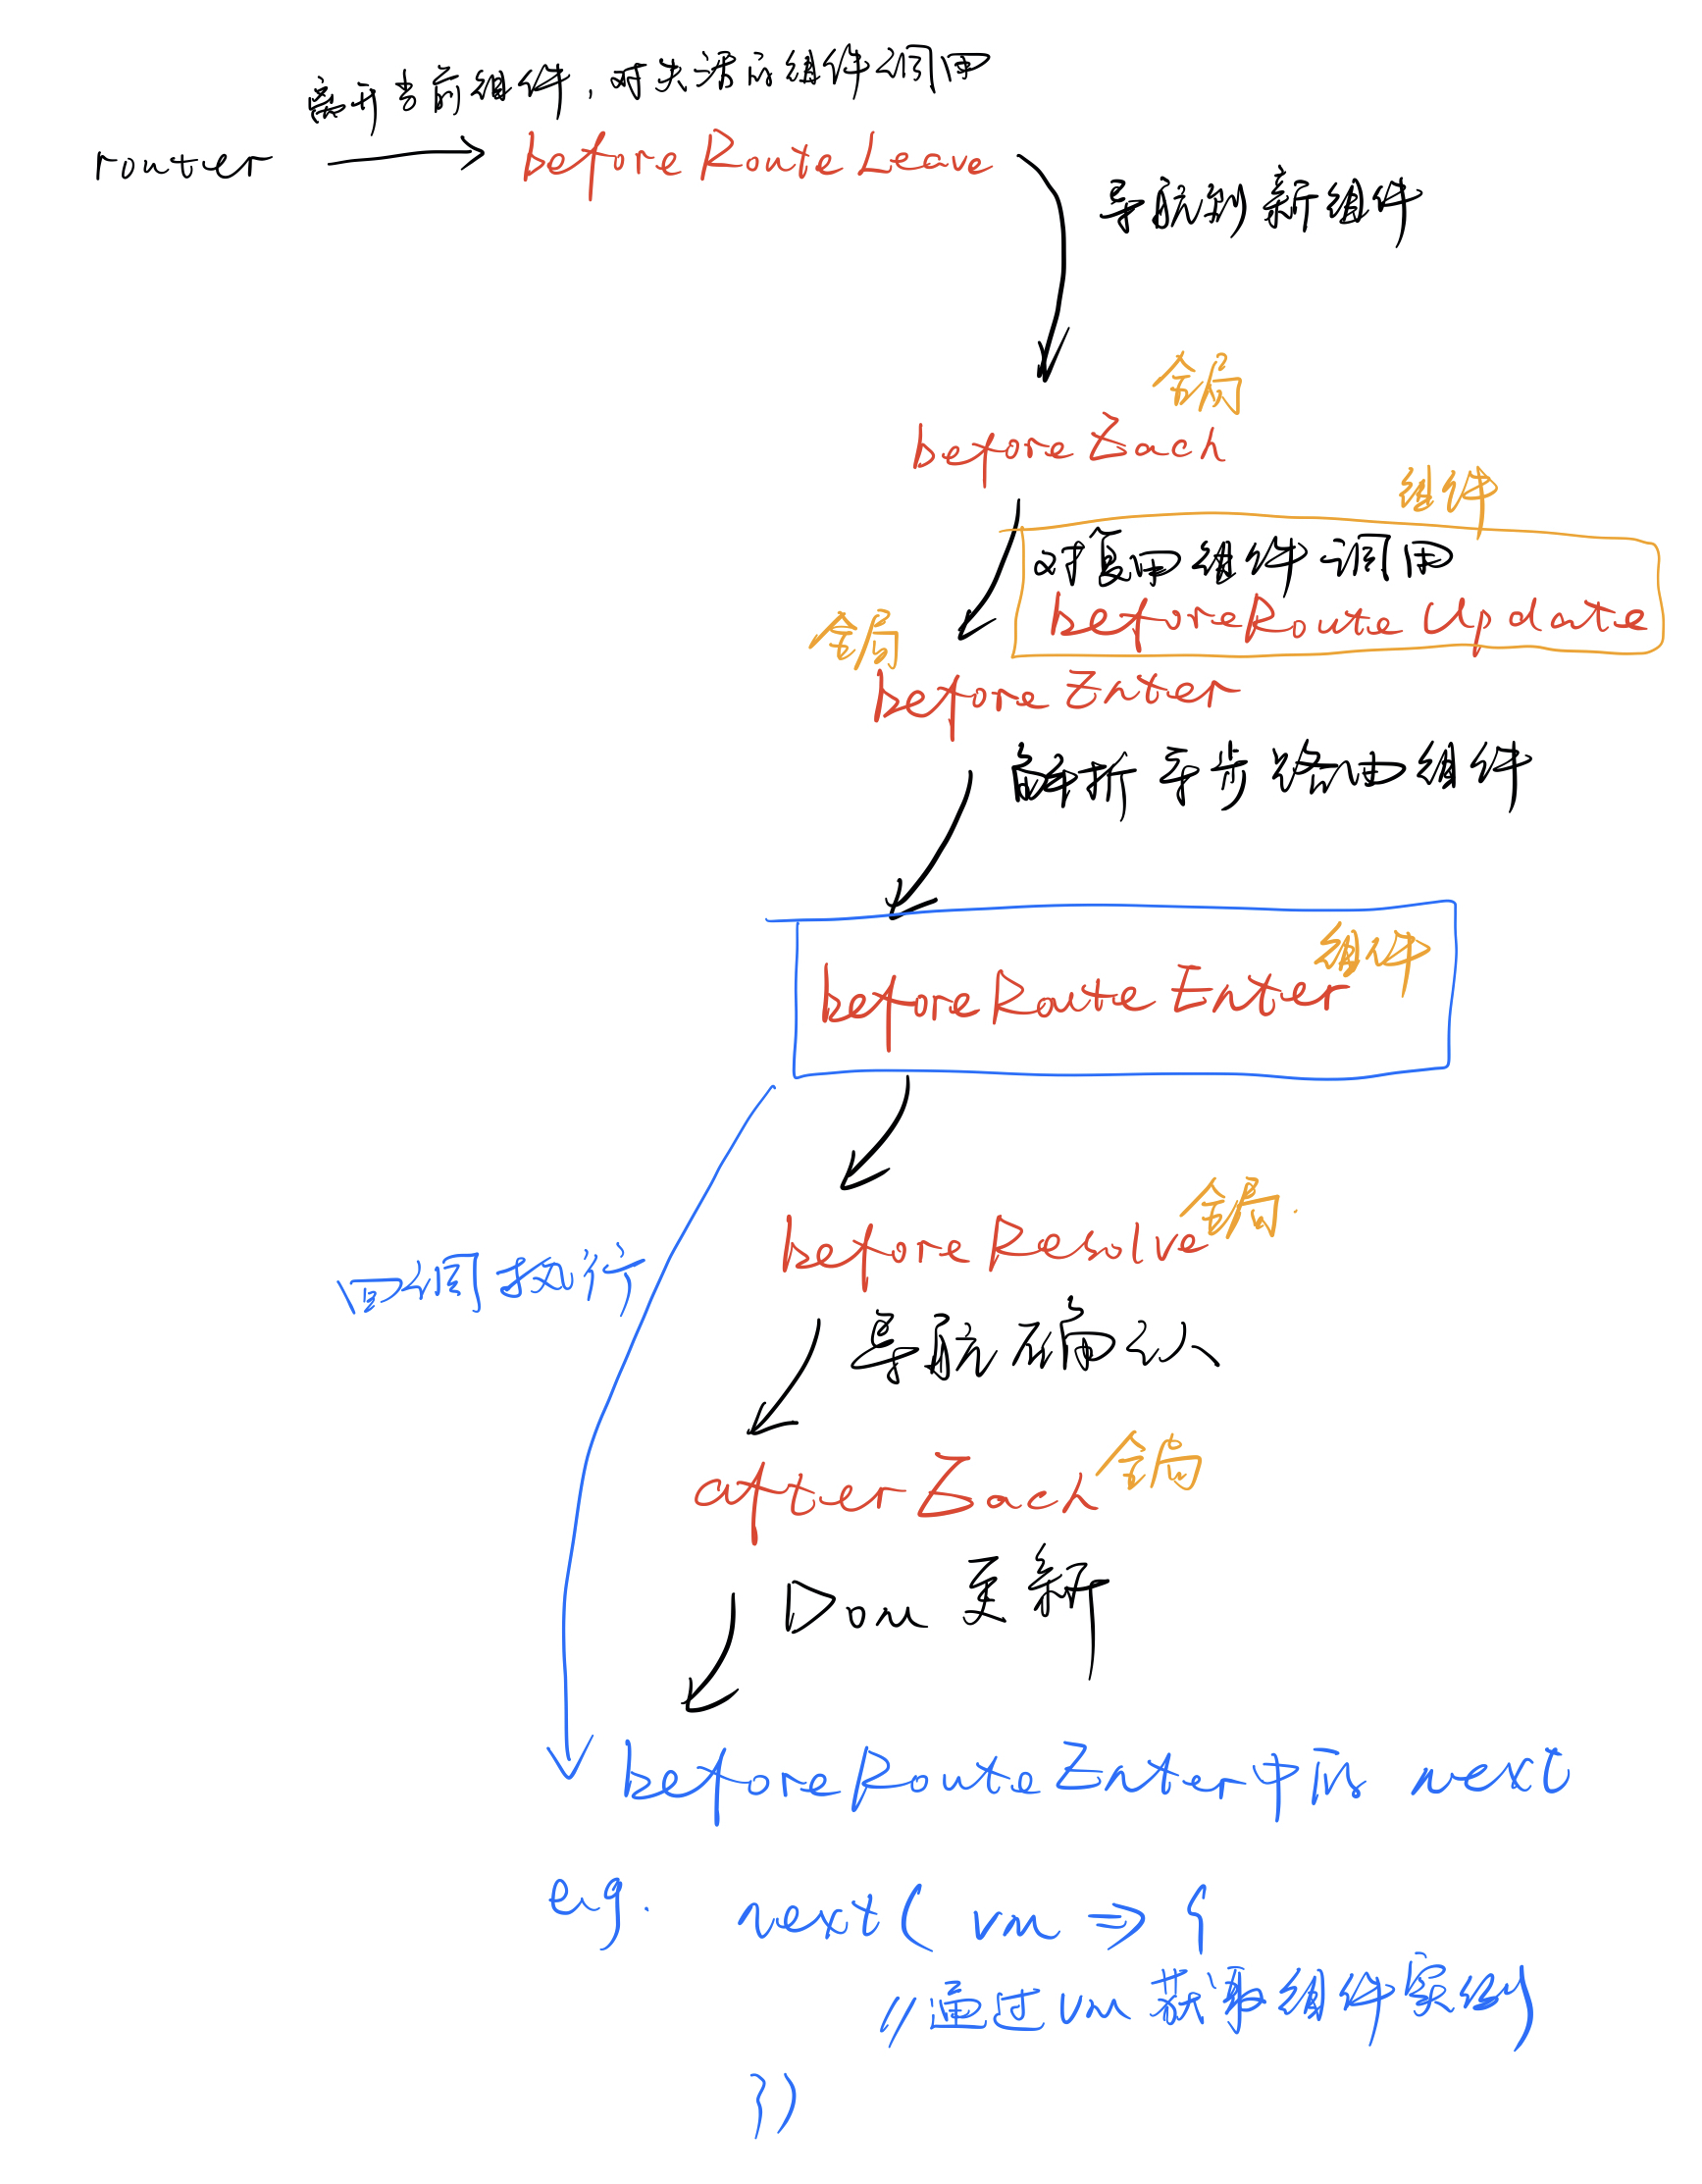 离开当前组件,对失活的组件调用
router
beforeRouteLeave
导航到新组件
全局
beforeEach
组件
对复用组件调用
beforeRouteUpdate
全局
beforeEnter
解析异步路由组件
组件
beforeRouteEnter
全局
beforeResolve
回调执行
导航确认
全局
afterEach
Dom 更新
beforeRouteEnter中的 next
e.g. next( vm => {
//通过vm获取组件实例
})